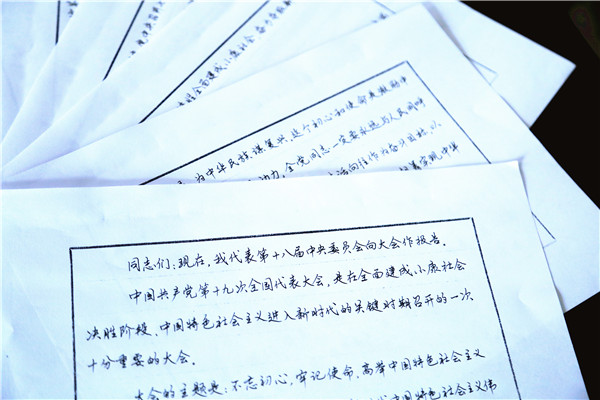 全面建成小康社会
为中华民族谋复兴。这个初心和使命是激励中
动力。全党同志一定要永远与人民同呼
活向往作为奋斗目标,以
着实现中华
同志们:现在,我代表第十八届中央委员会向大会作报告。
中国共产党第十九次全国代表大会,是在全面建成小康社会
决胜阶段、中国特色社会主义进入新时代的关键时期召开的一次
十分重要的大会。
大会的主题是:不忘初心,牢记使命,高举中国特色社会主义
中国特色社会主义伟